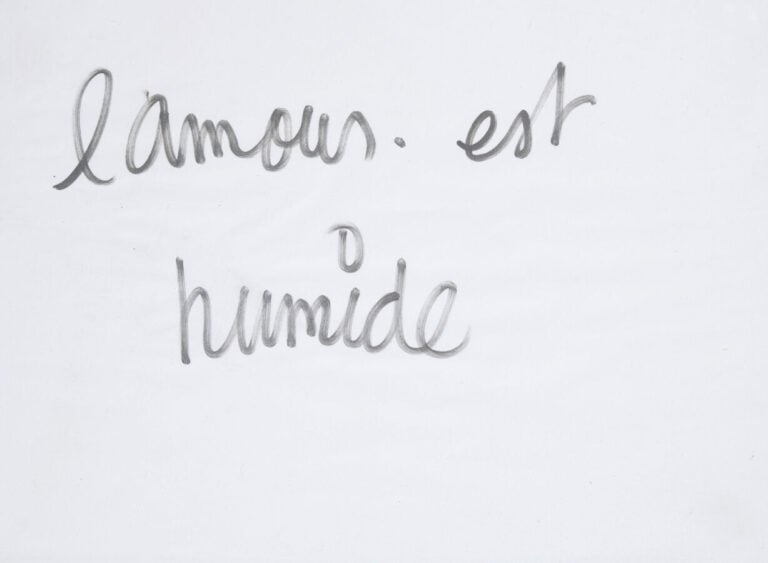 l'amour. est
humide